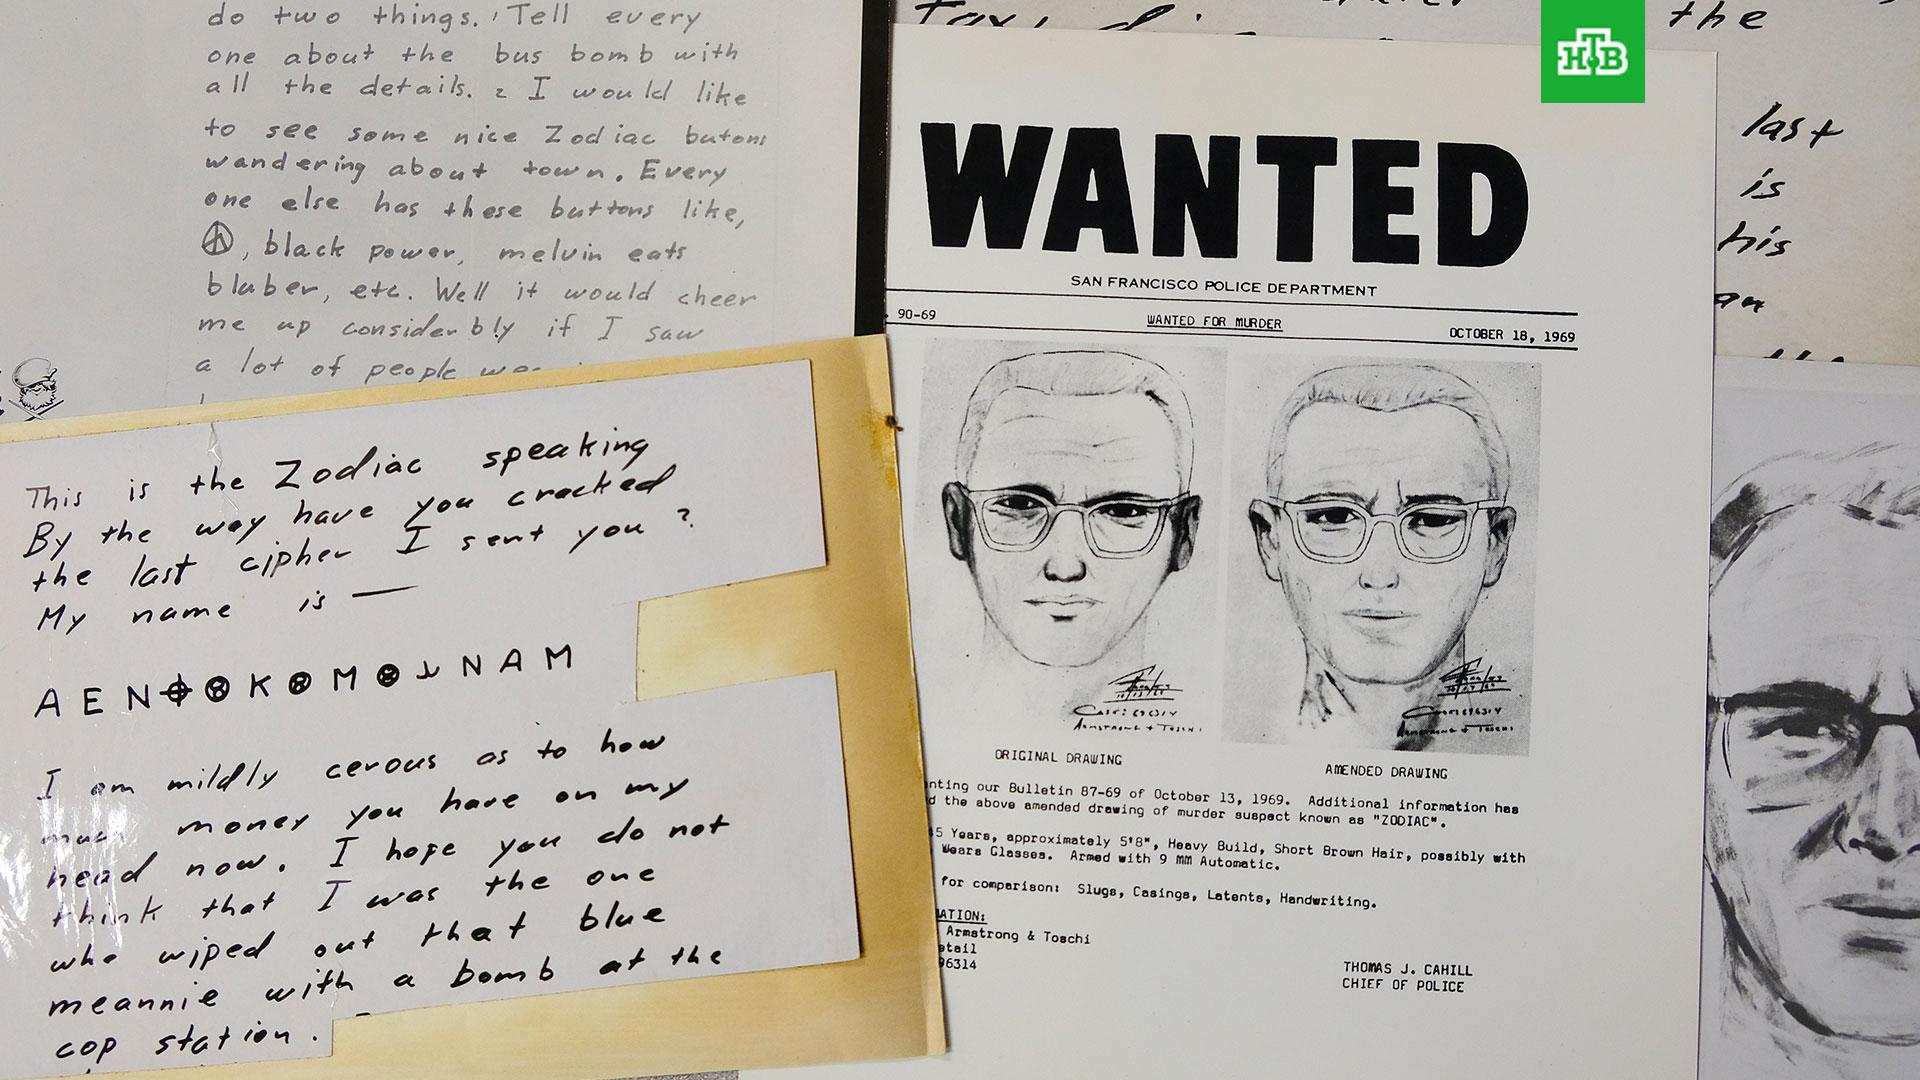 do two things. Tell every
one about the bus bomb with
all the details. 2 I would like
to see some nice Zodiac butons
wandering about town. Every
one else has these buttons like,
, black power, melvin eats
bluber, etc. Well it would cheer
me up considerbly if I saw
a lot of people
This is the Zodiac speaking
By the way have you cracked
the last cipher I sent you?
My name is —
A E N K M N A M
I am mildly cerous as to how
much money you have on my
head now. I hope you do not
think that I was the one
who wiped out that blue
meannie with a bomb at the
cop station.
the
last
is
his
НТВ
WANTED
SAN FRANCISCO POLICE DEPARTMENT
90-69 WANTED FOR MURDER OCTOBER 18, 1969
ORIGINAL DRAWING AMENDED DRAWING
our Bulletin 87-69 of October 13, 1969. Additional information has
the above amended drawing of murder suspect known as "ZODIAC".
45 Years, approximately 5'8", Heavy Build, Short Brown Hair, possibly with
Wears Glasses. Armed with 9 MM Automatic.
for comparison: Slugs, Casings, Latents, Handwriting.
Armstrong & Toschi
96314
THOMAS J. CAHILL
CHIEF OF POLICE